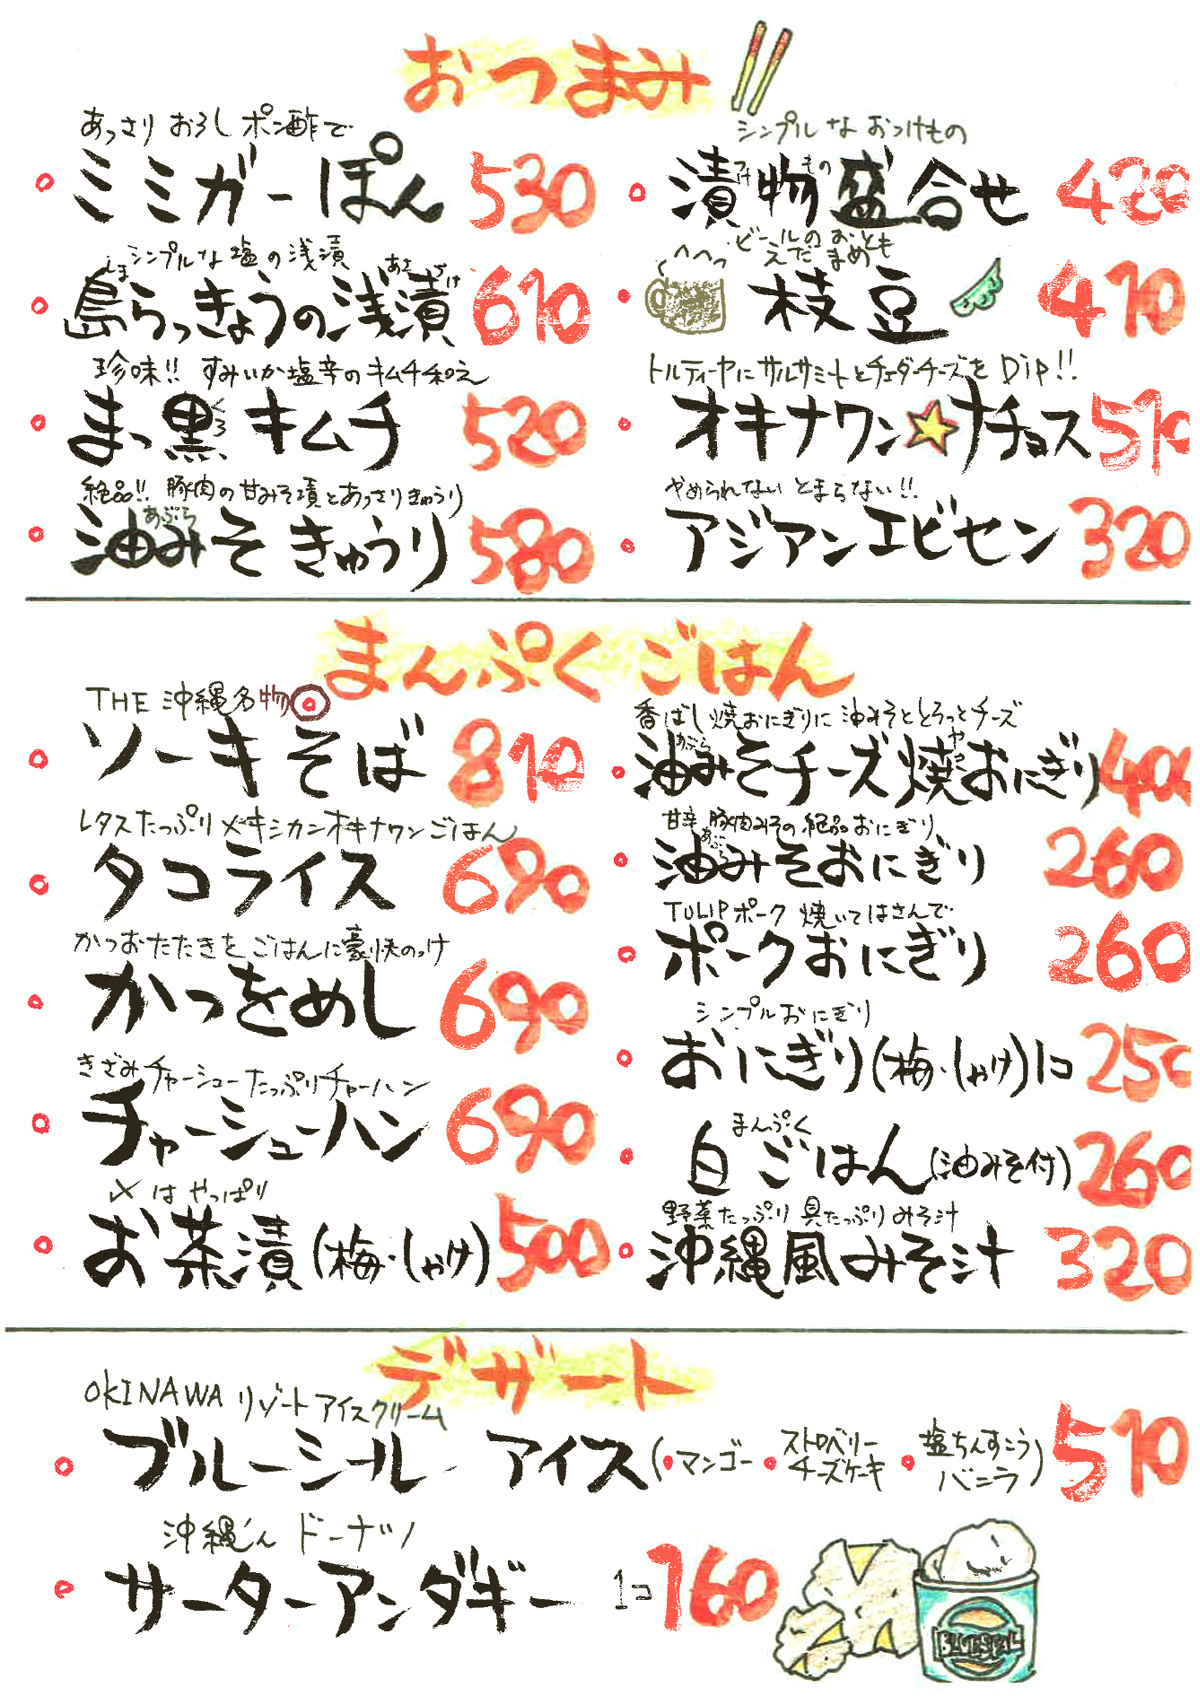 おつまみ
あっさり おろし ポン酢で
ミミガーぽん 530
シンプルな塩の浅漬
島らっきょうの浅漬 610
しま
あさづけ
珍味!! すみいか塩辛のキムチ和え
まっ黒キムチ 520
くろ
絶品!! 豚肉の甘みそ漬とあっさりきゅうり
油みそきゅうり 580
あぶら
シンプルな おつけもの
漬物盛合せ 420
つけもの
ビールのおとも
えだまめ
枝豆 410
トルティーヤにサルサミートとチェダーチーズを Dip!!
オキナワン☆ナチョス 510
やめられない とまらない!!
アジアンエビセン 320
まんぷくごはん
THE 沖縄名物
ソーキそば 810
レタスたっぷり メキシカンオキナワンごはん
タコライス 690
かつおたたきを ごはんに豪快のっけ
かつをめし 690
きざみチャーシューたっぷりチャーハン
チャーシューハン 690
〆は やっぱり
お茶漬(梅・しゃけ) 500
香ばし焼おにぎりに 油みそととろっとチーズ
油みそチーズ焼おにぎり 400
あぶら
ヤキ
甘辛 豚肉みその絶品おにぎり
油みそおにぎり 260
あぶら
TULIPポーク 焼いてはさんで
ポークおにぎり 260
シンプルおにぎり
おにぎり(梅・しゃけ)1コ 250
まんぷく
白ごはん(油みそ付) 260
野菜たっぷり 具たっぷり みそ汁
沖縄風みそ汁 320
デザート
OKINAWA リゾートアイスクリーム
ブルーシール アイス(・マンゴー・ストロベリーチーズケーキ・塩ちんすこうバニラ) 510
沖縄ん ドーナツ
サーターアンダギー 1コ 160
BLUE SEAL